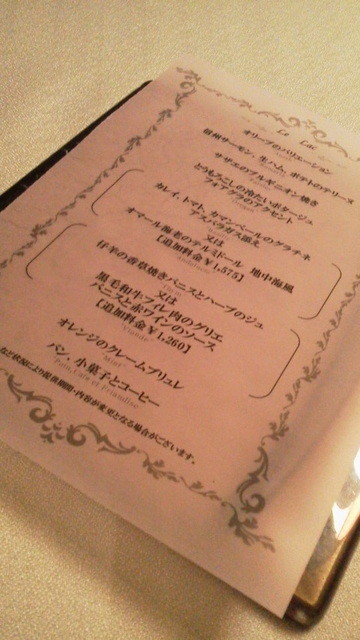 Le Lac
オリーブのバリエーション
信州サーモン、生ハム、ポテトのテリーヌ
サザエのブルギニオン焼き
とうもろこしの冷たいポタージュ
フォアグラのアクセント
カレイ、トマト、カマンベールのグラチネ
アスパラガス添え
又は
オマール海老のテルミドール 地中海風
【追加料金￥1,575】
仔羊の香草焼きパニスとハーブのジュ
又は
黒毛和牛フィレ肉のグリエ
パニスと赤ワインのソース
【追加料金￥1,260】
"Viande"
オレンジのクレームブリュレ
"Mint"
パン、小菓子とコーヒー
など状況により提供期間・内容が変更となる場合がございます。